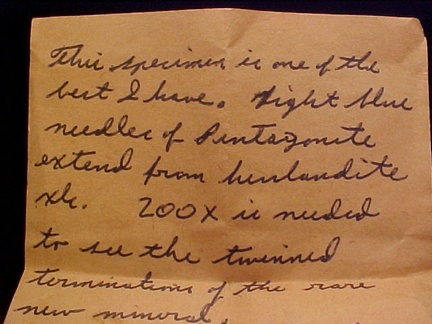 This specimen is one of the
best I have. Light blue
needles of Pentagonite
extend from heulandite
xls. 200X is needed
to see the twinned
terminations of the rare
new mineral.